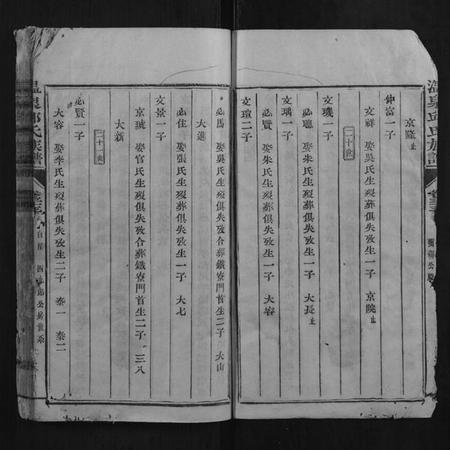 溫泉邱氏族譜
京隆止
仲富一子
文祥 娶吳氏生歿葬俱失攷生一子 京院止
二十世
文璣一子
必聰 娶朱氏生歿葬俱失攷生一子 大長止
文瑀一子
必賢 娶朱氏生歿葬俱失攷生一子 大容
文瑄二子
必馬 娶吳氏生歿葬俱失攷生一子 大山
大進
必住 娶張氏生歿葬俱失攷生一子 大七
文景一子
京琥 娶官氏生歿俱失攷合葬鐵寮門首生二子 三八
大新
二十一世
必賢一子
大容 娶李氏生歿葬俱失攷生二子 泰一 泰二
溫泉邱氏族譜